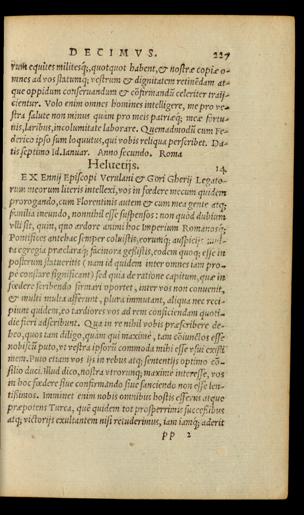 DECIMVS. 227
rum equites militesq;, quotquot habent, & nostræ copiæ o-
mnes ad vos statumq; vestrum & dignitatem retinēdam at-
que oppidum conseruandum & cōfirmandū celeriter traij-
cientur. Volo enim omnes homines intelligere, me pro ve-
stra salute non minus quàm pro meis patriæq; meæ fortu-
nis, laribus, incolumitate laborare. Quemadmodū cum Fe-
derico ipso sum loquutus, qui vobis reliqua perscribet. Da-
tis septimo Id. Ianuar. Anno secundo. Roma
Heluetijs. 14.
EX Ennij Episcopi Verulani & Gori Gherij Legato-
rum meorum literis intellexi, vos in fœdere mecum quidem
prorogando, cum Florentinis autem & cum mea gente atq;
familia ineundo, nonnihil esse suspensos: non quòd dubium
vlli sit, quin, quo ardore animi hoc Imperium Romanosq;
Pontifices antehac semper coluistis, eorumq; auspicijs
ta egregia præclaraq; facinora gessistis, eodem quoq; esse in
posterum statueritis (nam id quidem inter omnes iam pro-
pè constare significant) sed quia de ratione capitum, quæ in
fœdere scribendo firmari oportet, inter vos non conuenit,
& multi multa afferunt, plura immutant, aliqua nec reci-
piunt quidem, eo tardiores vos ad rem conficiendam quoti-
die fieri adseribunt. Qua in re nihil vobis præscribere de-
beo, quos tam diligo, quàm qui maximè, tam cōiunctos esse
nobiscū puto, vt vestra ipsorū commoda mihi esse vsui existi
mem. Puto etiam vos ijs in rebus atq; sententijs optimo cō-
silio duci. Illud dico, nostra vtrorumq; maximè interesse, vos
in hoc fœdere siue confirmando siue sanciendo non esse len-
tissimos. Imminet enim nobis omnibus hostis efferus atque
præpotens Turca, quē quidem tot prosperrimis successibus
atq; victorijs exultantem nisi retuderimus, iam iamq; aderit
pp 2